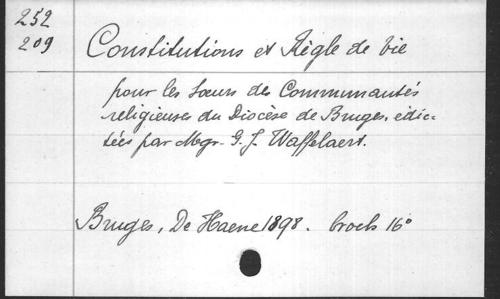 252
209
Constitutions et Règle de vie
pour les Sœurs des Communautés
religieuses du Diocèse de Bruges, édic-
tées par Mgr. G. J. Waffelaert.
Bruges, De Haene 1898. broch 16°